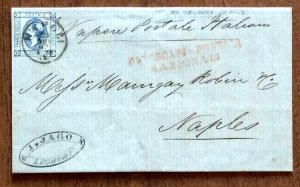 Vapore Postale Italiano
PIROSCAFI POSTALI
NAZIONALI
Messrs Maingay Robin & C
Naples
J. JAGO
LEGHORN